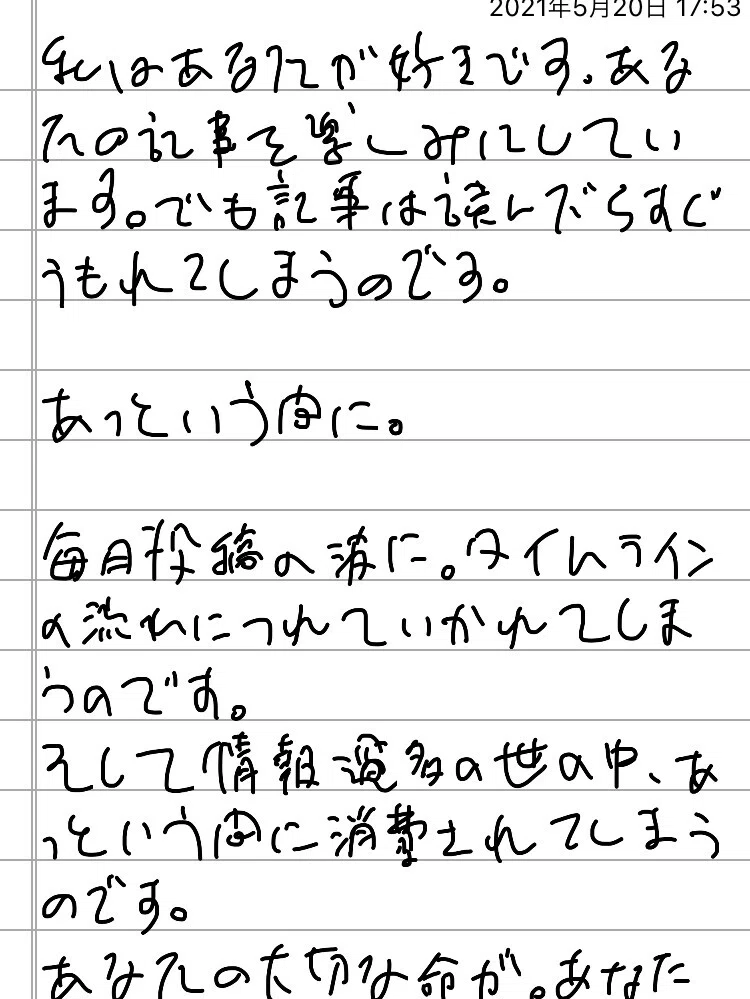 2021年5月20日 17:53
私はあなたが好きです。あな
たの記事を楽しみにしてい
ます。でも記事は読んだらすぐ
うもれてしまうのです。
あっという間に。
毎日投稿の波に。タイムライン
の流れにつれていかれてしま
うのです。
そして情報過多の世の中、あ
っという間に消費されてしまう
のです。
あなたの大切な命が。あなた